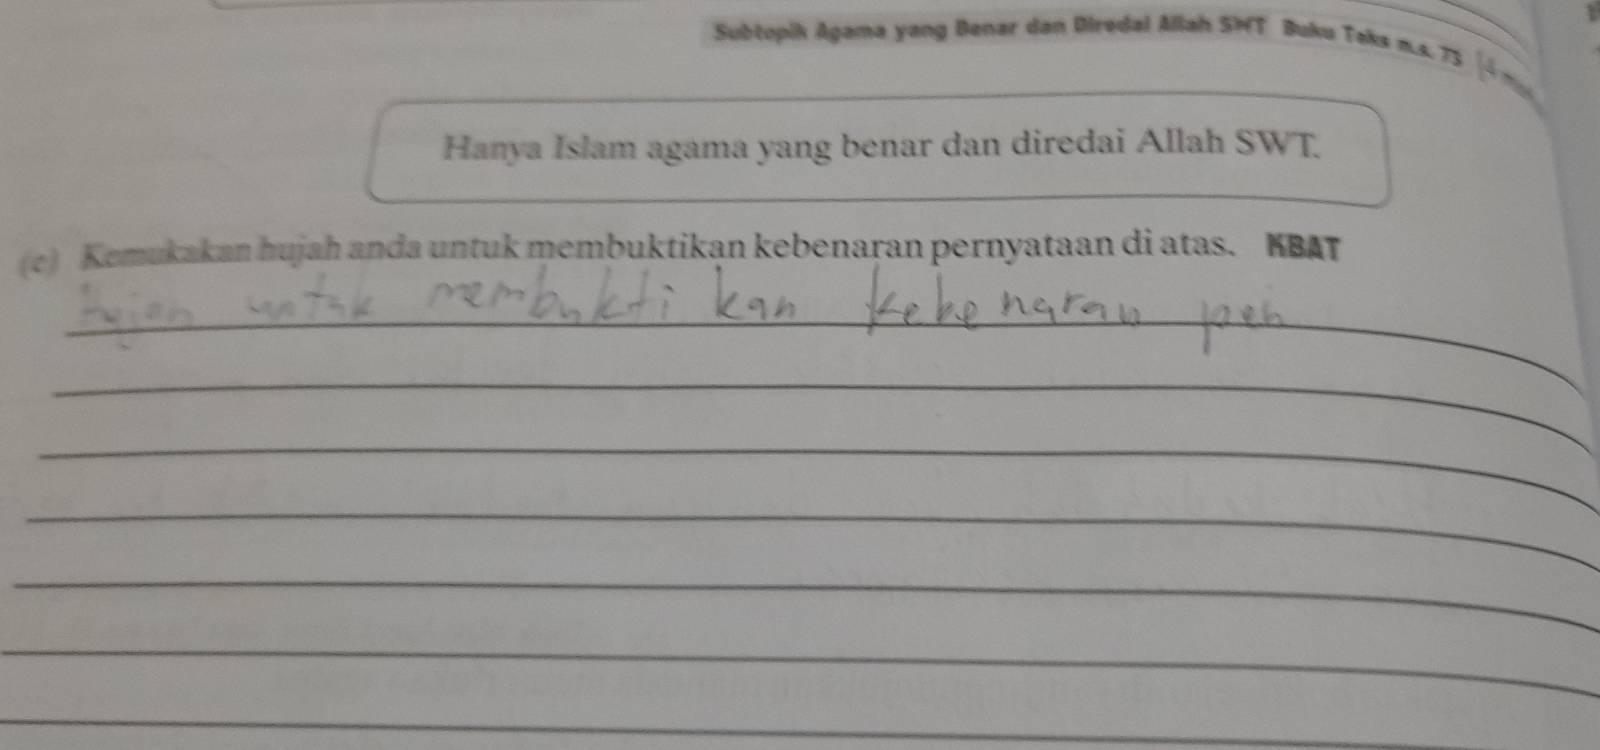 Subtopik Agama yang Benar dan Diredai Allah SWT Buku Teks m.s. 73 [4
Hanya Islam agama yang benar dan diredai Allah SWT.
(c) Kemukakan hujah anda untuk membuktikan kebenaran pernyataan di atas. KBAT
untuk membukti kan kebenaran